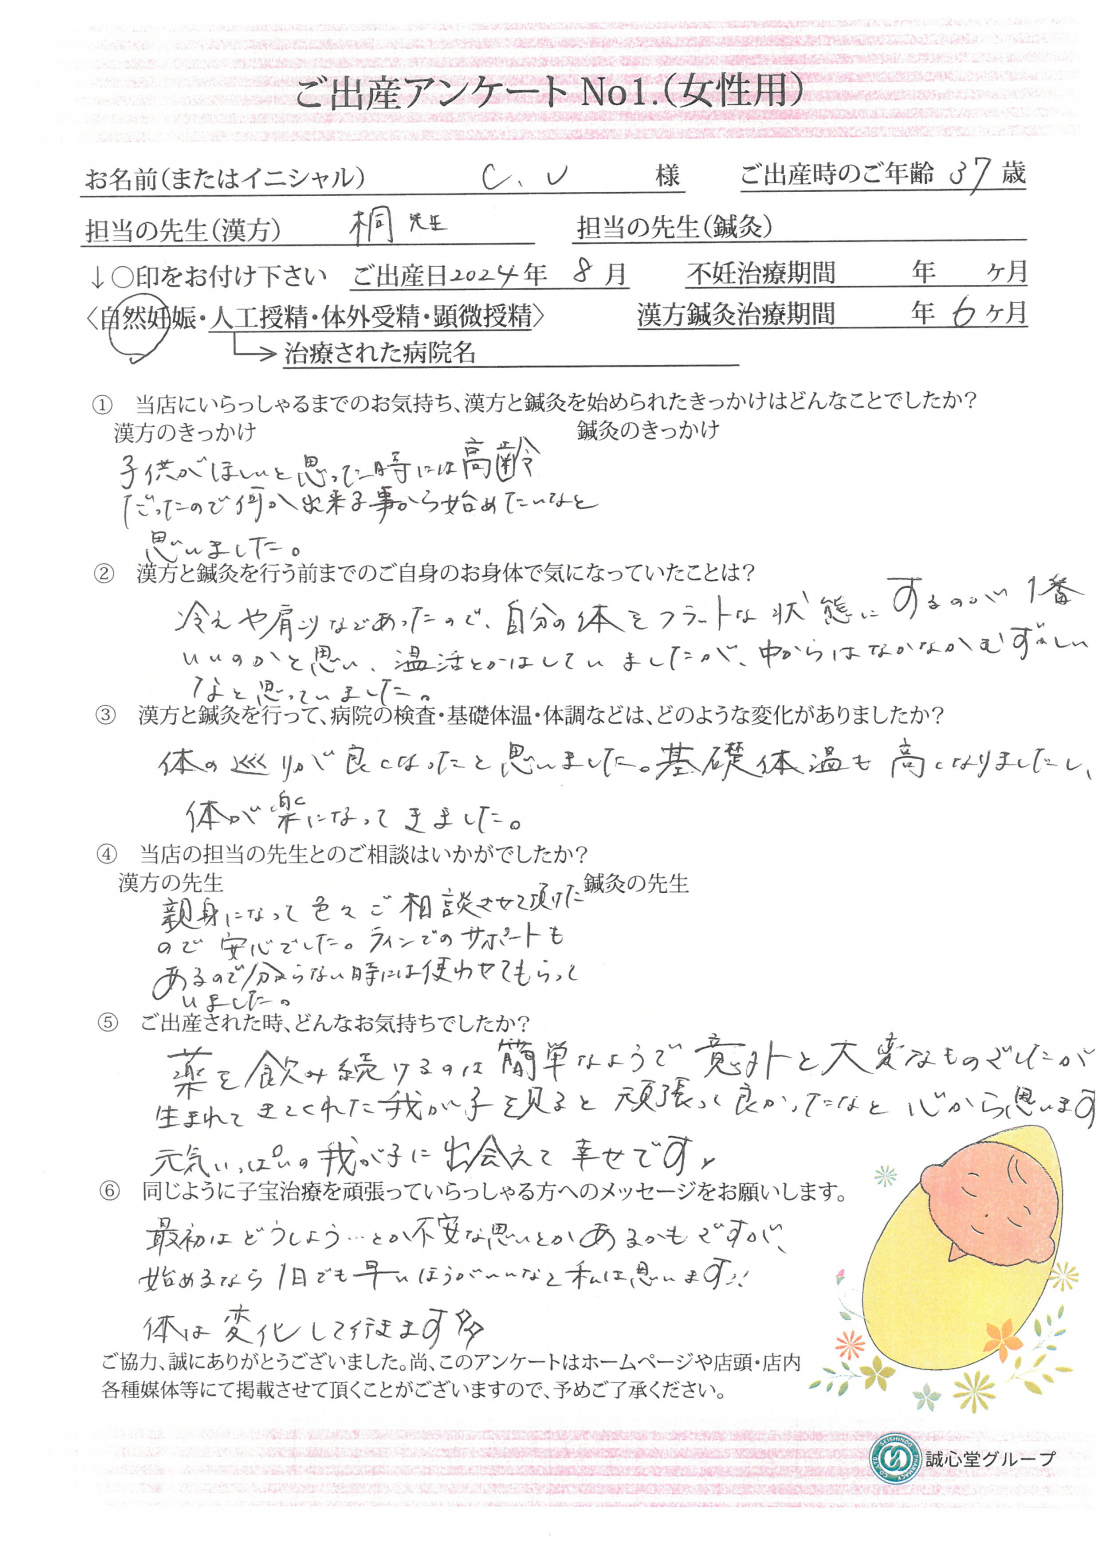 ご出産アンケート No1.(女性用)
お名前(またはイニシャル) C、U 様 ご出産時のご年齢 37 歳
担当の先生(漢方) 桐先生 担当の先生(鍼灸)
↓○印をお付け下さい ご出産日2024年 8月 不妊治療期間 年 ヶ月
〈自然妊娠・人工授精・体外受精・顕微授精〉 漢方鍼灸治療期間 年 6ヶ月
治療された病院名
① 当店にいらっしゃるまでのお気持ち、漢方と鍼灸を始められたきっかけはどんなことでしたか?
漢方のきっかけ 鍼灸のきっかけ
子供がほしいと思った時には高齢
だったので何か出来る事から始めたいなと
思いました。
② 漢方と鍼灸を行う前までのご自身のお身体で気になっていたことは?
冷えや肩こりなどあったので、自分の体をフラットな状態にするのが1番
いいのかと思い、温活とかはしていましたが、中からはなかなかむずかしい
なと思っていました。
③ 漢方と鍼灸を行って、病院の検査・基礎体温・体調などは、どのような変化がありましたか?
体の巡りが良くなったと思いました。基礎体温も高くなりましたし、
体が楽になってきました。
④ 当店の担当の先生とのご相談はいかがでしたか?
漢方の先生 鍼灸の先生
親身になって色々ご相談させて頂けた
ので安心でした。ラインでのサポートも
あるので分からない時には使わせてもらって
いました。
⑤ ご出産された時、どんなお気持ちでしたか?
薬を飲み続けるのは簡単なようで意外と大変なものでしたが
生まれてきてくれた我が子を見ると頑張って良かったなと心から思います
元気いっぱいの我が子に出会えて幸せです
⑥ 同じように子宝治療を頑張っていらっしゃる方へのメッセージをお願いします。
最初はどうしよう…とか不安な思いとかあるかもですが、
始めるなら1日でも早いほうがいいなと私は思います!!
体は変化して行きます
ご協力、誠にありがとうございました。尚、このアンケートはホームページや店頭・店内
各種媒体等にて掲載させて頂くことがございますので、予めご了承ください。
誠心堂グループ